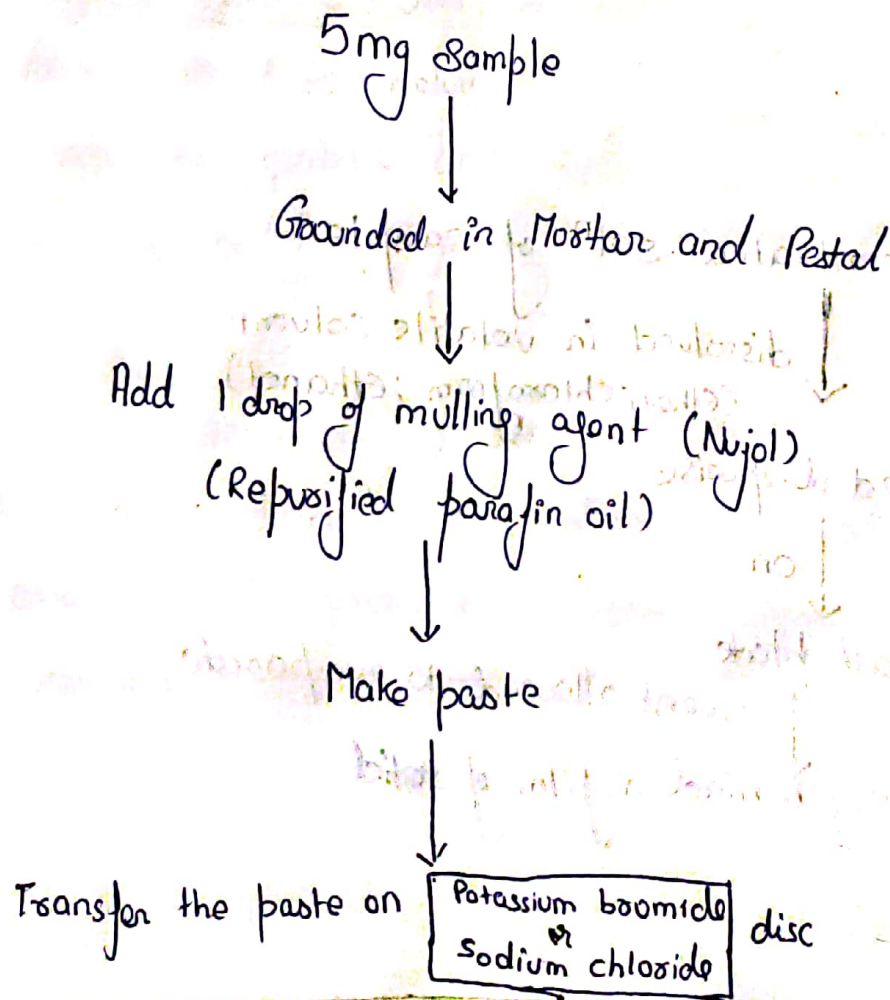 5mg Sample
Grounded in Mortar and Pestal
Add 1 drop of mulling agent (Nujol)
(Repurified parafin oil)
Make paste
Transfer the paste on Potassium bromide or Sodium chloride disc